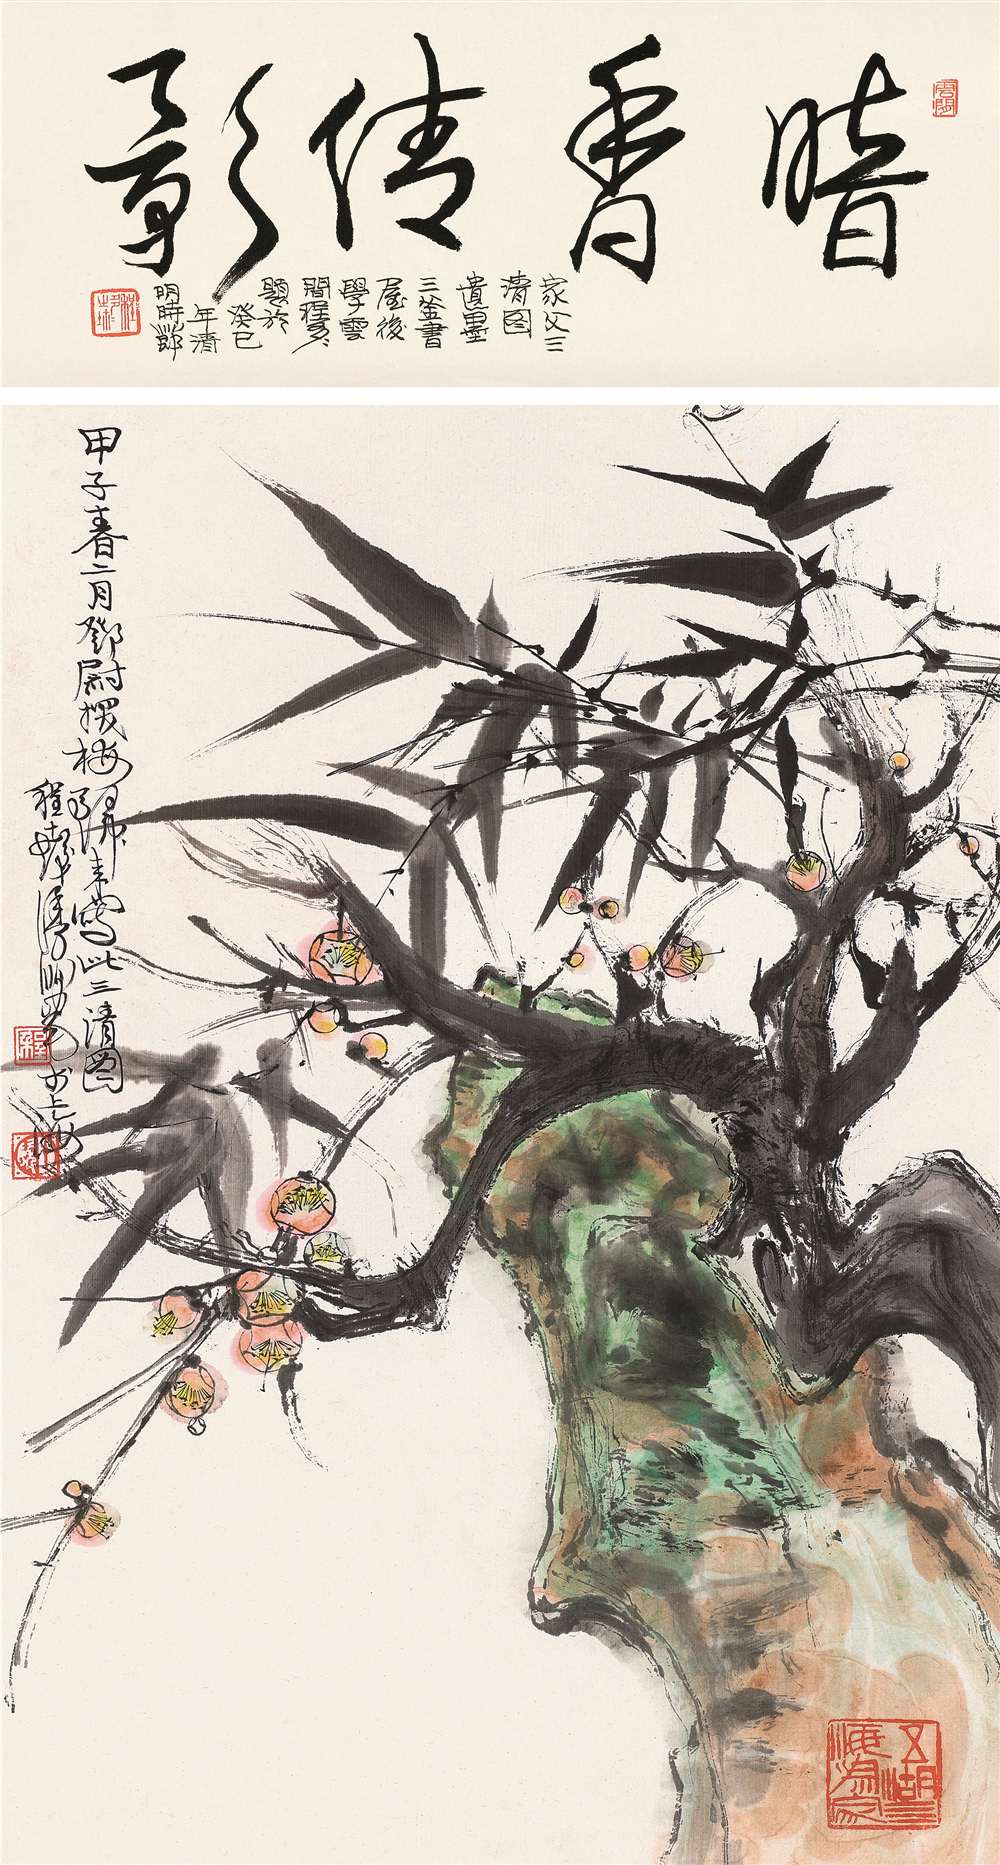 暗香倩影
雲間
家父三
清图
遺墨
三釜書
屋後
學雲
閣程多多
題於
癸巳
年清
明時節
甲子春二月鄧尉探梅歸來寫此三清圖
程十髮 於上海
程